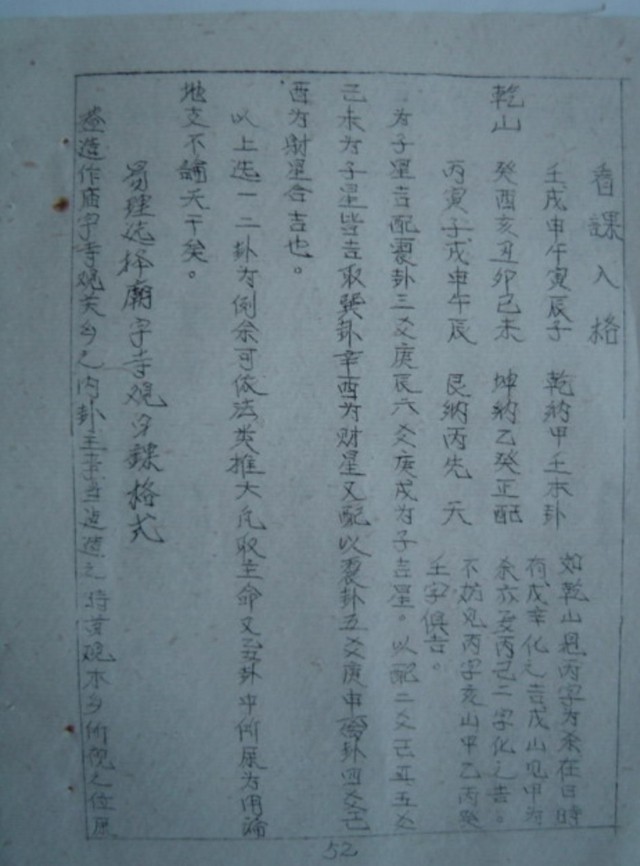 看課入格
壬戌申午寅辰子 乾納甲壬本卦
乾山 癸酉亥丑卯己未 坤納乙癸正配
丙寅子戌申午辰 艮納丙先天
如乾山見丙字为杀在日時
有戊辛化之吉戌山見甲为
杀亦要丙己二字化之吉。
不妨見丙字亥山甲乙丙癸
壬字俱吉。
为子星吉配震卦三爻庚辰六爻庚戌为子吉星。以配二爻己丑五爻
己未为子星皆吉取巽卦辛酉为财星又配以震卦五爻庚申 卦四爻己
酉为财星合吉也。
以上选一二卦为例余可依法类推大凡取主命又与卦中所属为用論
地支不論天干矣。
易理选择廟宇寺观 課格式
造作庙宇寺观关乡之内卦主 当造 之時首观本乡所 之位属
52